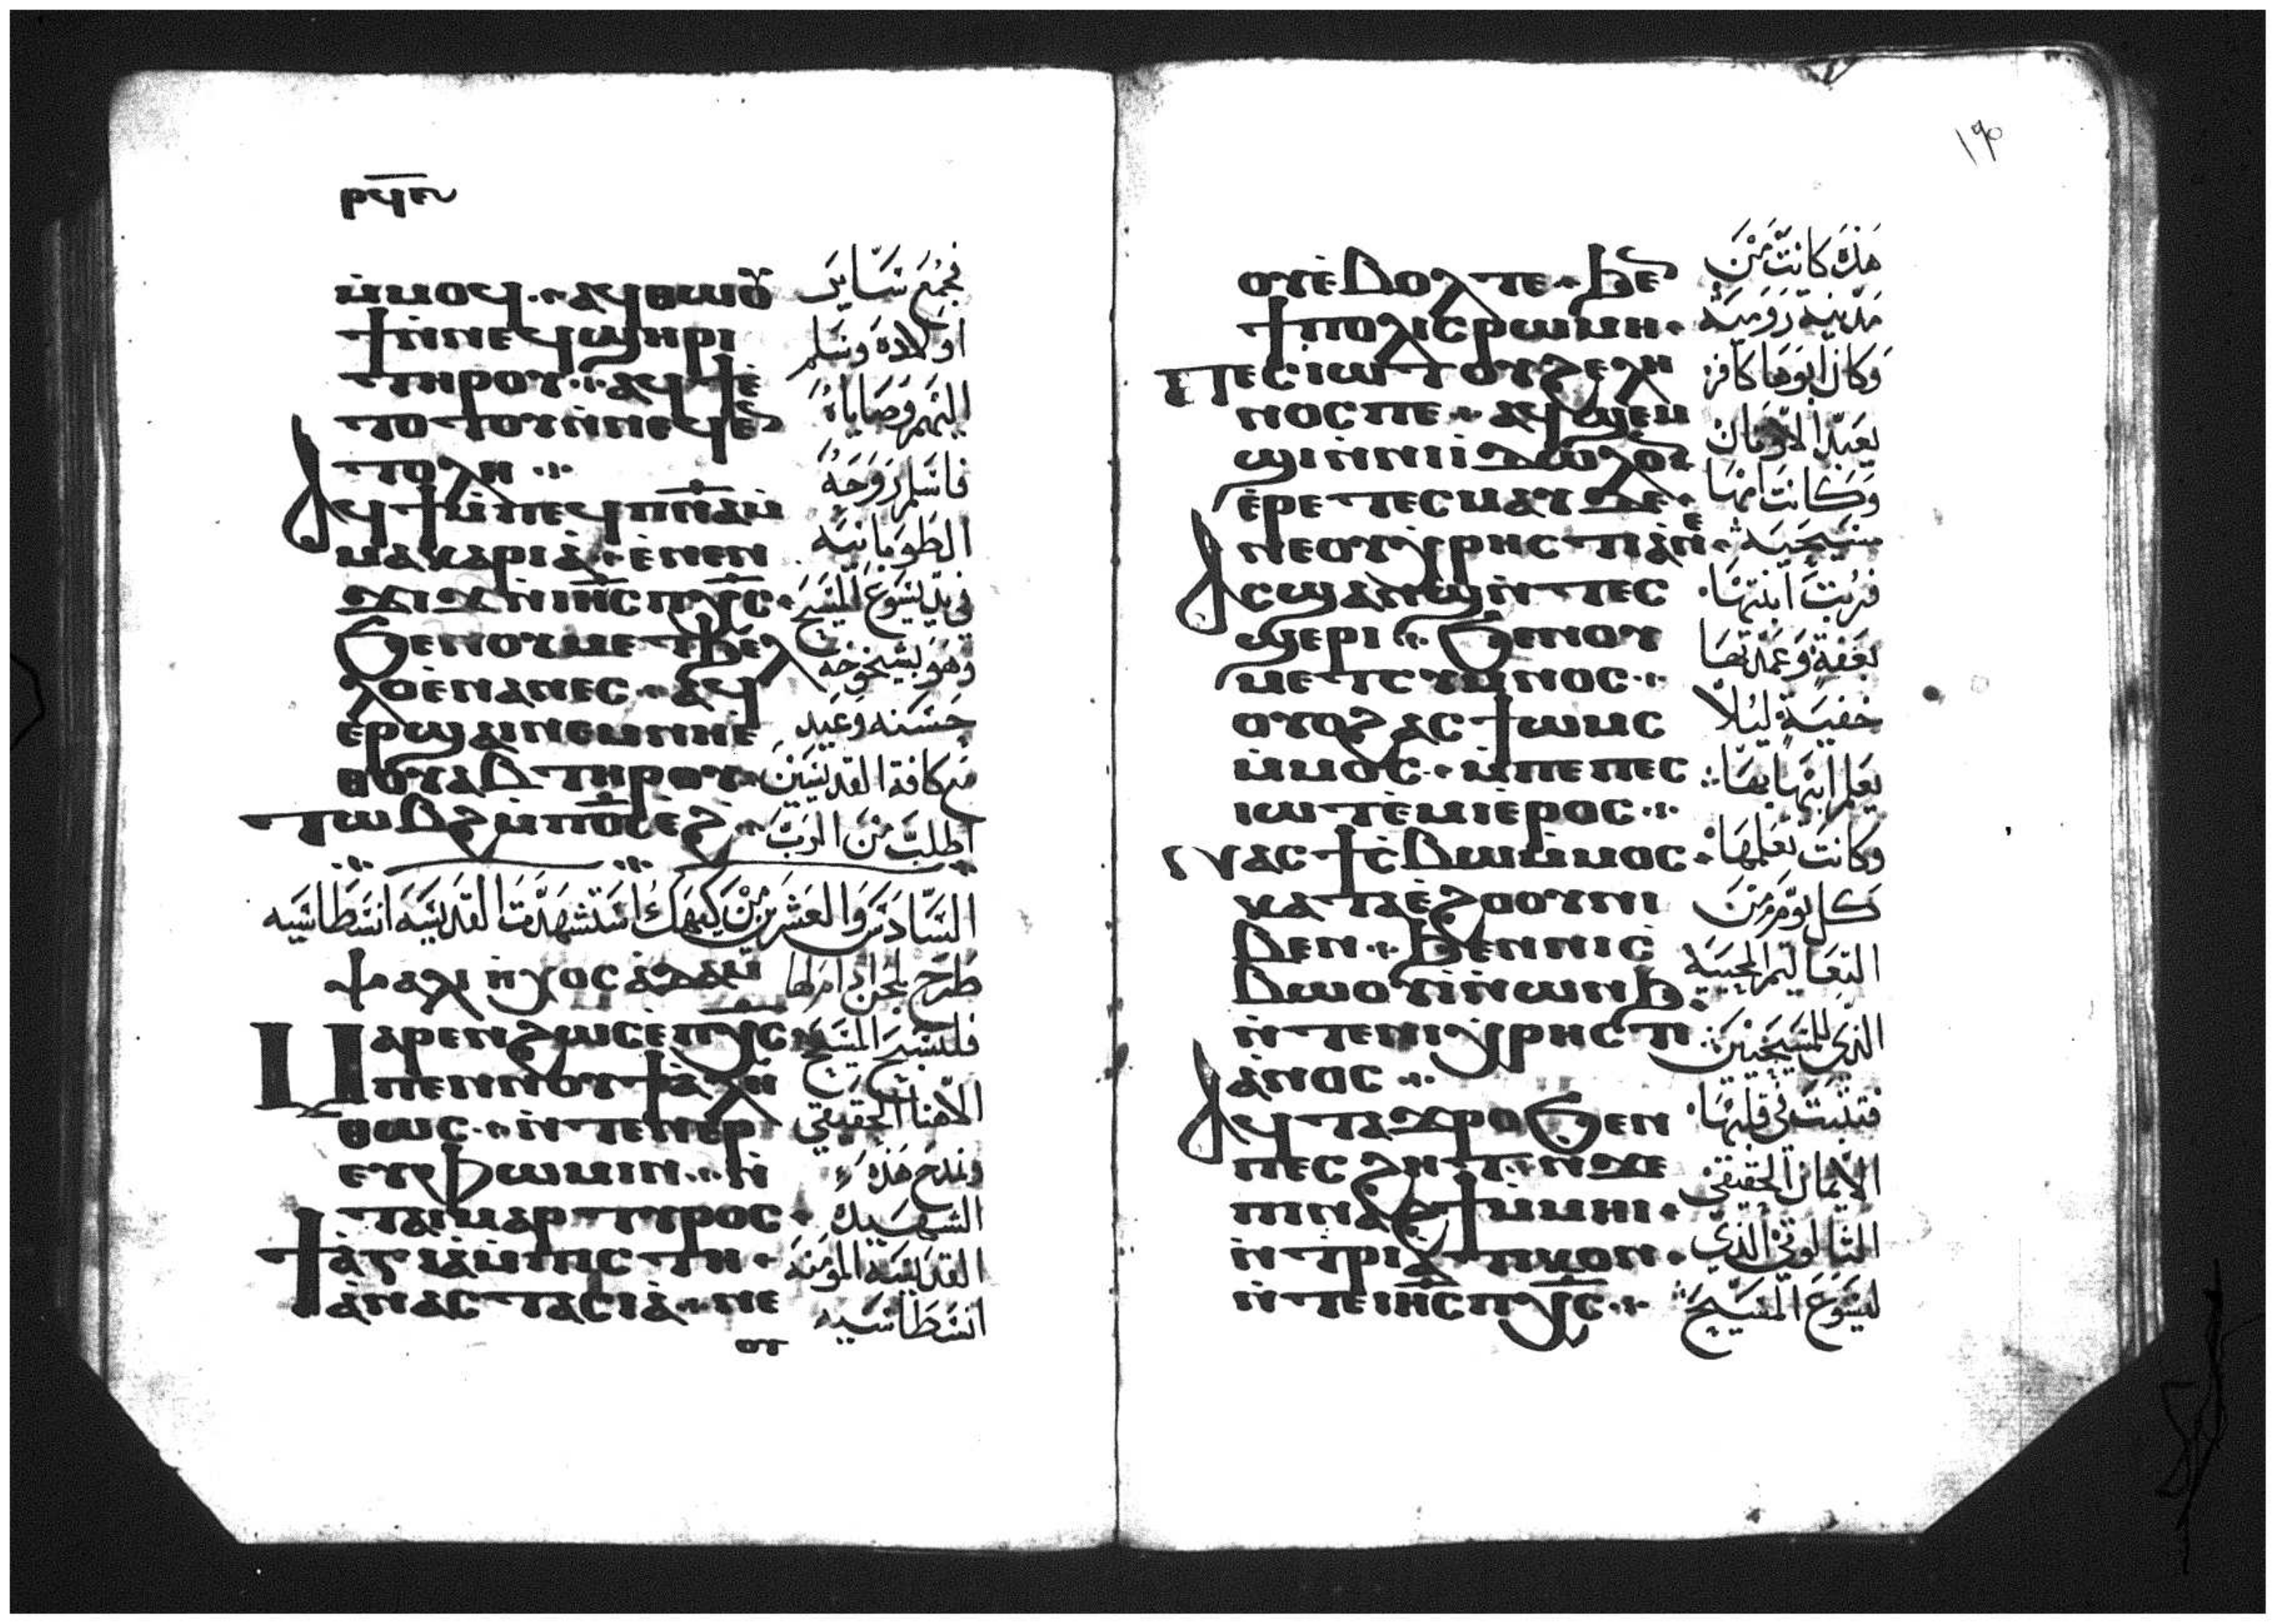 ⲣϥⲉ
ⲙ̇ⲙⲟϥ ⲁϥⲑⲱⲟⲩ
ϯⲛ̇ⲛⲉϥϣⲏⲣⲓ
ⲧⲏⲣⲟⲩ ⲁϥϯⲉ̇
ⲧⲟⲧⲟⲩⲛ̇ⲛⲉϥⲉⲛ
ⲧⲟⲗⲏ
ⲁϥϯⲙ̇ⲡⲉϥⲡ̅ⲛ̅ⲁ̅ⲙ̇
ⲙⲁⲕⲁⲣⲓⲁ̇ ⲉ̇ⲛⲉⲛ
ϫⲓϫⲛ̇ⲓⲏ̅ⲥ̅ⲡⲭ̅ⲥ̅
ϧⲉⲛⲟⲩⲙⲉⲧϧⲉⲗ
ⲗⲟⲉ̇ⲛⲁⲛⲉⲥ ⲁϥ
ⲉⲣϣⲁⲓⲛⲉⲙⲛⲏⲉ̇
ⲑⲟⲩⲁⲃⲧⲏⲣⲟⲩ
ⲧⲱⲃϩⲙ̇ⲡⲟ̅ⲥ̅ⲉ̇ϩ
فجمع سَاير
اولاده وسلم
اليهم وصاياه
فاسلم روحه
الطوبانيه
في يدي يسوع المسيح
وهو بشيخوخه
حسنه وعيد
مع كافة القديسين
اطلب من الرب
السادس والعشرين من كيهك استشهدت القديسه انسطاسيه
ⲯⲁⲗⲓ ⲛ̇ⲭⲟⲥ ⲁ̇ⲇⲁⲙ
طرح لحن ادام لها
ⲙⲁⲣⲉⲛϩⲱⲥⲉ̇ⲡⲭ̅ⲥ̅
ⲡⲉⲛⲛⲟⲩϯⲁ̇ⲗⲏ
ⲑⲱⲥ ⲛ̇ⲧⲉⲛⲉⲣ
ⲉⲩⲫⲱⲙⲓⲛ ⲛ̇
ⲧⲁⲓⲙⲁⲣⲧⲩⲣⲟⲥ
ϯⲁ̇ⲅⲓⲁ̇ⲙ̇ⲡⲓⲥⲧⲏ
ⲁ̇ⲛⲁⲥⲧⲁⲥⲓⲁ̇ ⲛⲉ
ⲟⲩ
فلنسبح المسيح
الاهنا الحقيقي
ونمدح هذه
الشهيده
القديسه المومنه
انسطاسيه
١٩٥
ⲟⲩⲉ̇ⲃⲟⲗⲧⲉ ϧⲉⲛ
ϯⲡⲟⲗⲓⲥⲣⲱⲙⲏ
ⲡⲉⲥⲓⲱⲧⲟⲩϩⲉⲗⲗⲏ
ⲛⲟⲥⲡⲉ ⲁϥϣⲉⲙ
ϣⲓⲛ̇ⲛⲓⲓ̇ⲇⲱⲗⲟⲛ
ⲉ̇ⲣⲉⲧⲉⲥⲙⲁⲩⲇⲉ
ⲛⲉⲟⲩⲭⲣⲏⲥⲧⲓⲁ̇ⲛⲉ
ⲁⲥϣⲁⲛϣⲛ̇ⲧⲉⲥ
ϣⲉⲣⲓ ϧⲉⲛⲟⲩ
ⲙⲉⲧⲥⲩⲙⲛⲟⲥ
ⲟⲩⲟϩⲁⲥϯⲱⲙⲥ
ⲙ̇ⲙⲟⲥ ⲙ̇ⲡⲉⲡⲉⲥ
ⲓⲱⲧⲉ̇ⲙⲓⲉ̇ⲣⲟⲥ
ⲛⲁⲥϯⲥ̇ⲃⲱⲙ̇ⲙⲟⲥ
ⲕⲁⲧⲁⲉ̇ϩⲟⲟⲩⲛⲓ
ⲃⲉⲛ ϧⲉⲛⲛⲓⲥ̇
ⲃⲱⲟⲩⲓ̇ⲛ̇ⲱⲛϧ
ⲛ̇ⲧⲉⲛⲓⲭⲣⲏⲥⲧⲓ
ⲁ̇ⲛⲟⲥ
ⲁϥⲧⲁϫⲣⲟϧⲉⲛ
ⲡⲉⲥϩⲏⲧⲛ̇ϫⲉ
ⲡⲓⲛⲁϩϯⲙ̇ⲙⲏⲓ
ⲛ̇ⲧⲣⲓⲁ̇ⲧⲓⲕⲟⲛ
ⲛ̇ⲧⲉⲓⲏ̅ⲥ̅ⲡⲭ̅ⲥ̅
هذه كانت من
مدينة رومية
وكان ابوها كافر
يعبد الاوثان
وكانت امها
مسيحيه
فربت ابنتها
بعفة وعمدتها
خفية ليلا
يعلم ابيها بها
وكانت تعلمها
كل يوم من
التعاليم المحييه
الذي للمسيحيين
فتثبت في قلبها
الايمان الحقيقي
الثالوثي الذي
ليسوع المسيح